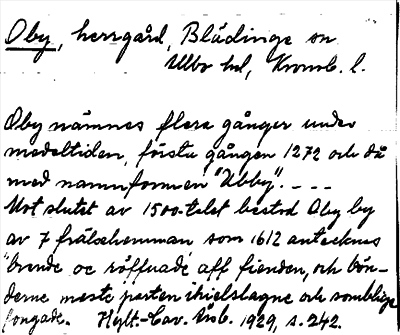 Oby, herrgård, Blädinge sn
Allbo hd, Kronob. l.
Oby nämnes flera gånger under
medeltiden, första gången 1272 och då
med namnformen "Ubby". - - -
Mot slutet av 1500-talet bestod Oby by
av 7 frälsehemman som 1612 antecknes
"brende oc röffuade aff fienden, och bön-
derne meste parten ihielslagne och somblige
fongade. Hylt.-Cav. årsb. 1929, s. 242.